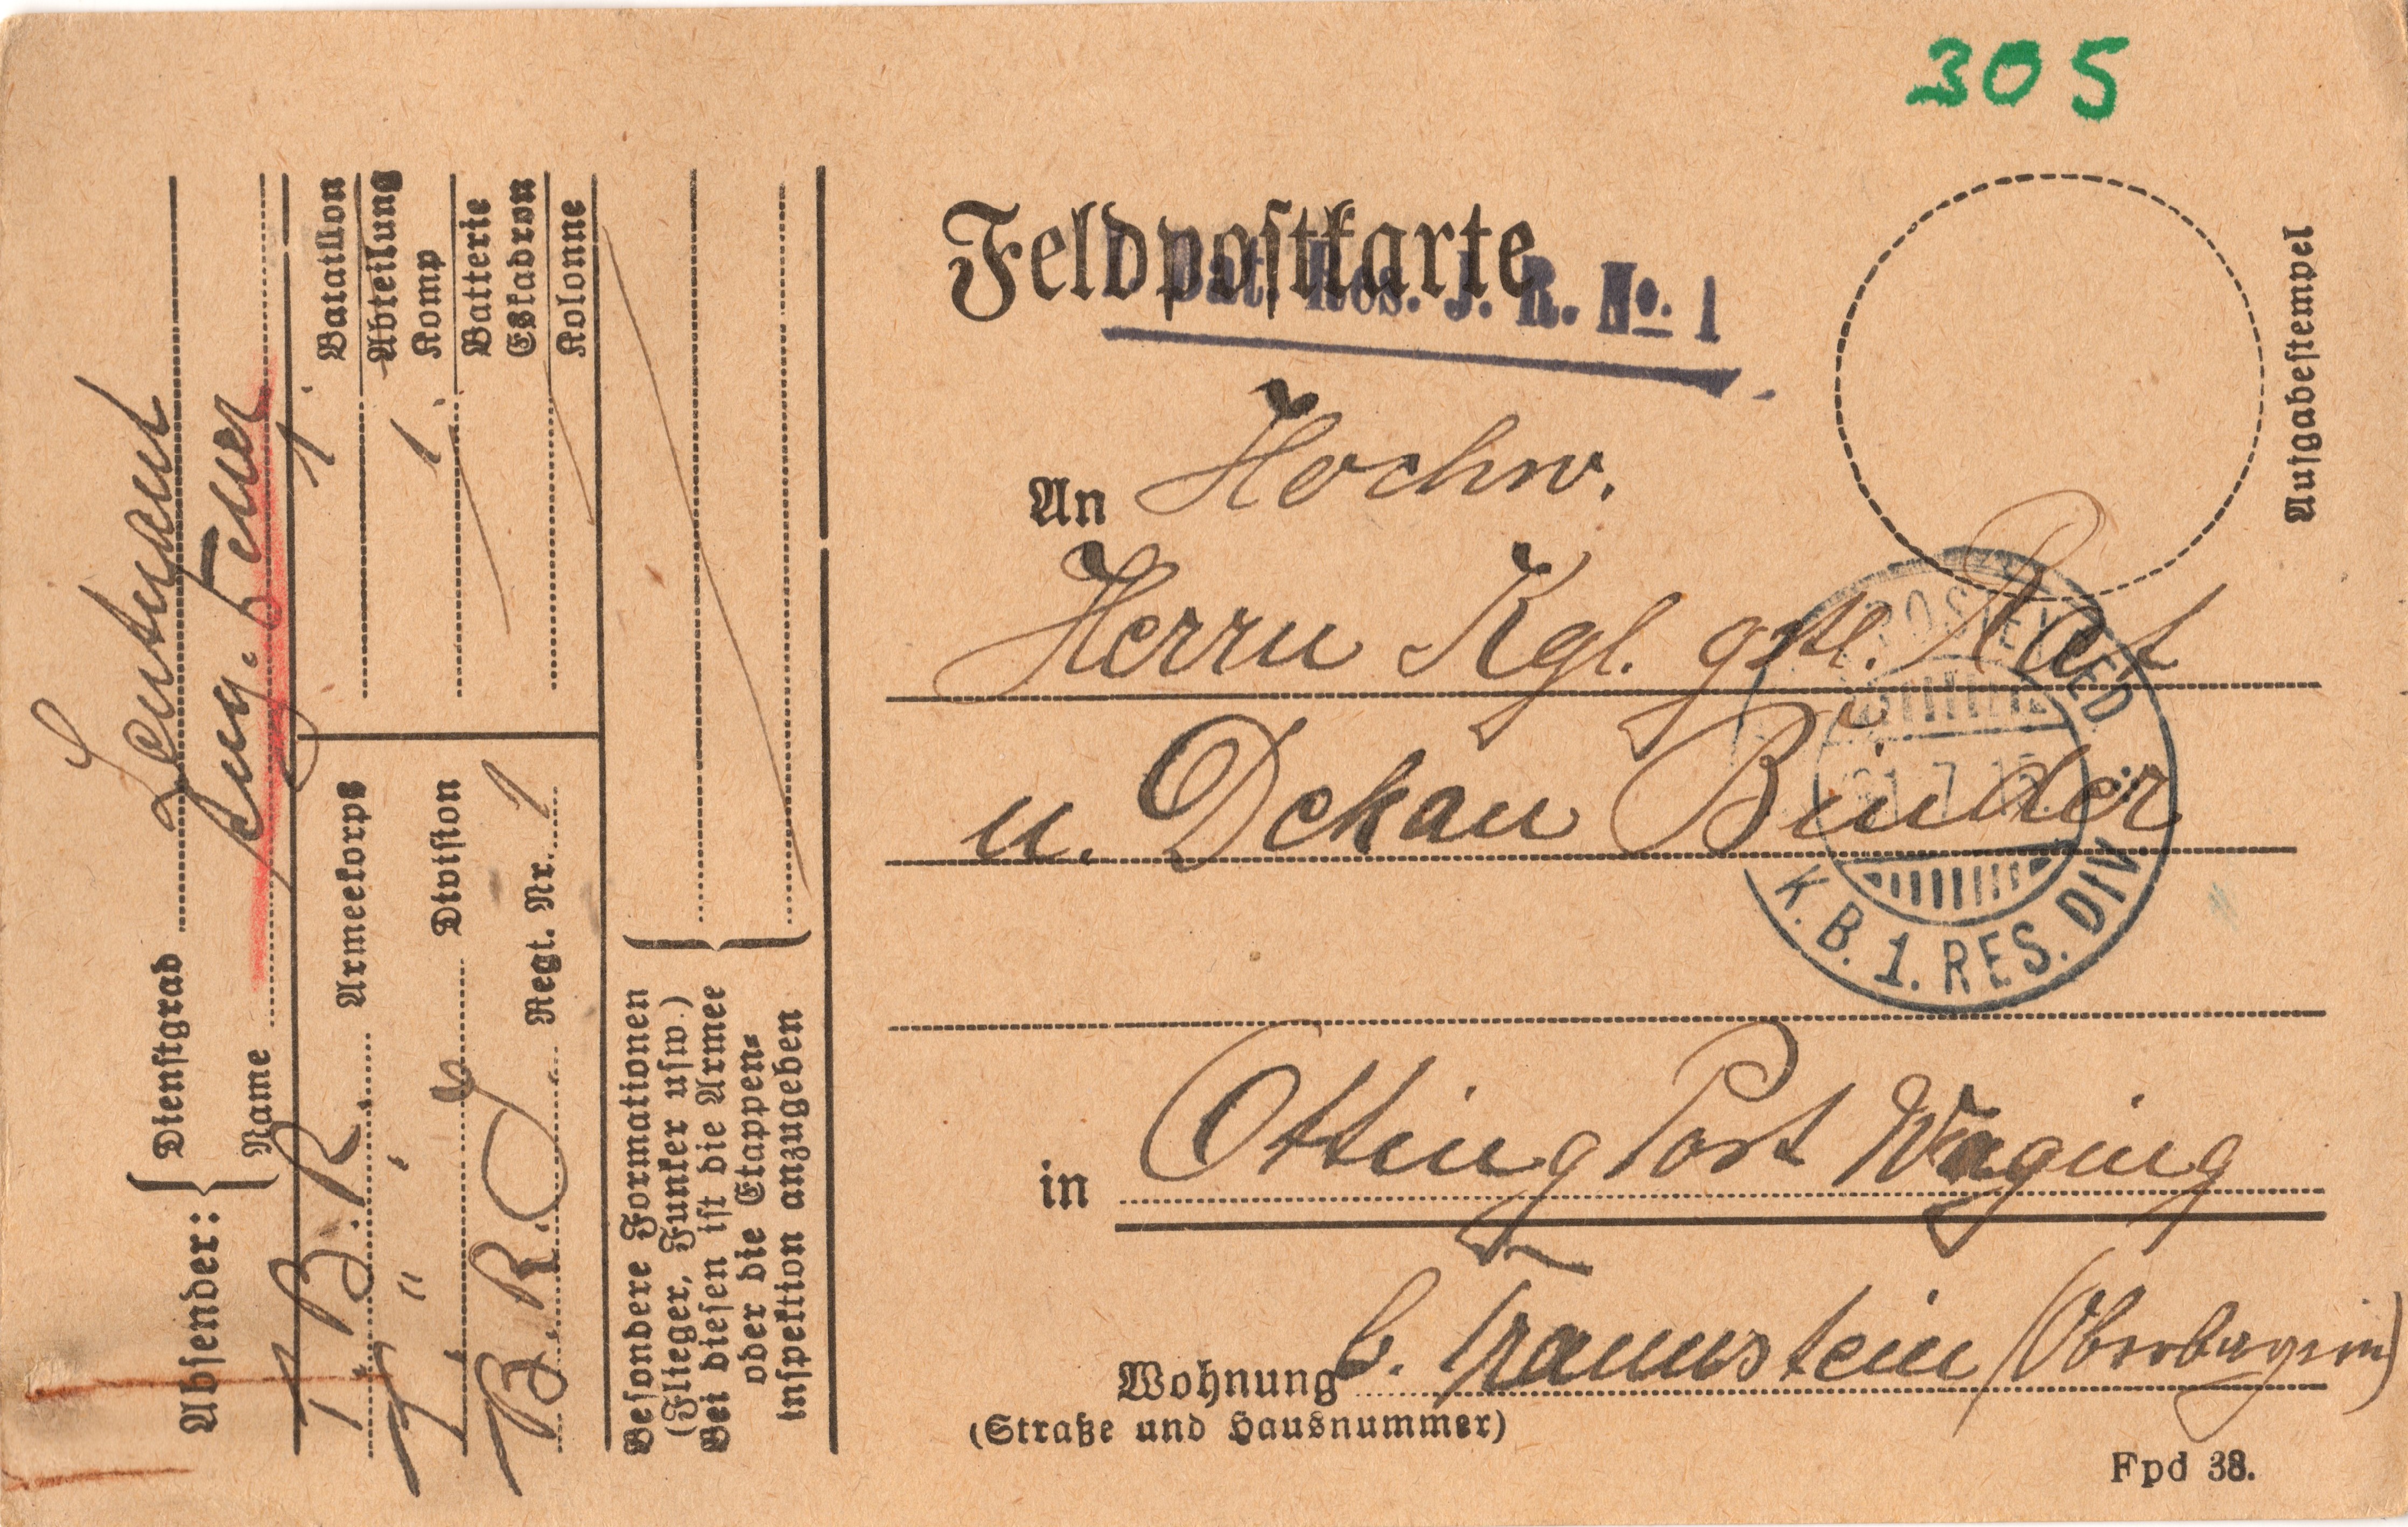 305
Feldpostkarte
Bat. Res. J. R. No. 1
Aufgabestempel
An Hochw.
Herrn Kgl. gstl. Rat
u. Dekan Binder
K. B. 1. RES. DIV.
in Otting Post Waging
Wohnung b. Traunstein (Oberbayern)
(Straße und Hausnummer)
Fpd 38.
Absender:
Dienstgrad Leutnant
Name
I. B. R. Armeekorps
I. " " Division
B. R. J. Regt. Nr. 1
1 Bataillon
Abteilung
1. Komp
Batterie
Eskadron
Kolonne
Besondere Formationen
(Flieger, Funker usw.)
Bei diesen ist die Armee
oder die Etappen-
inspektion anzugeben